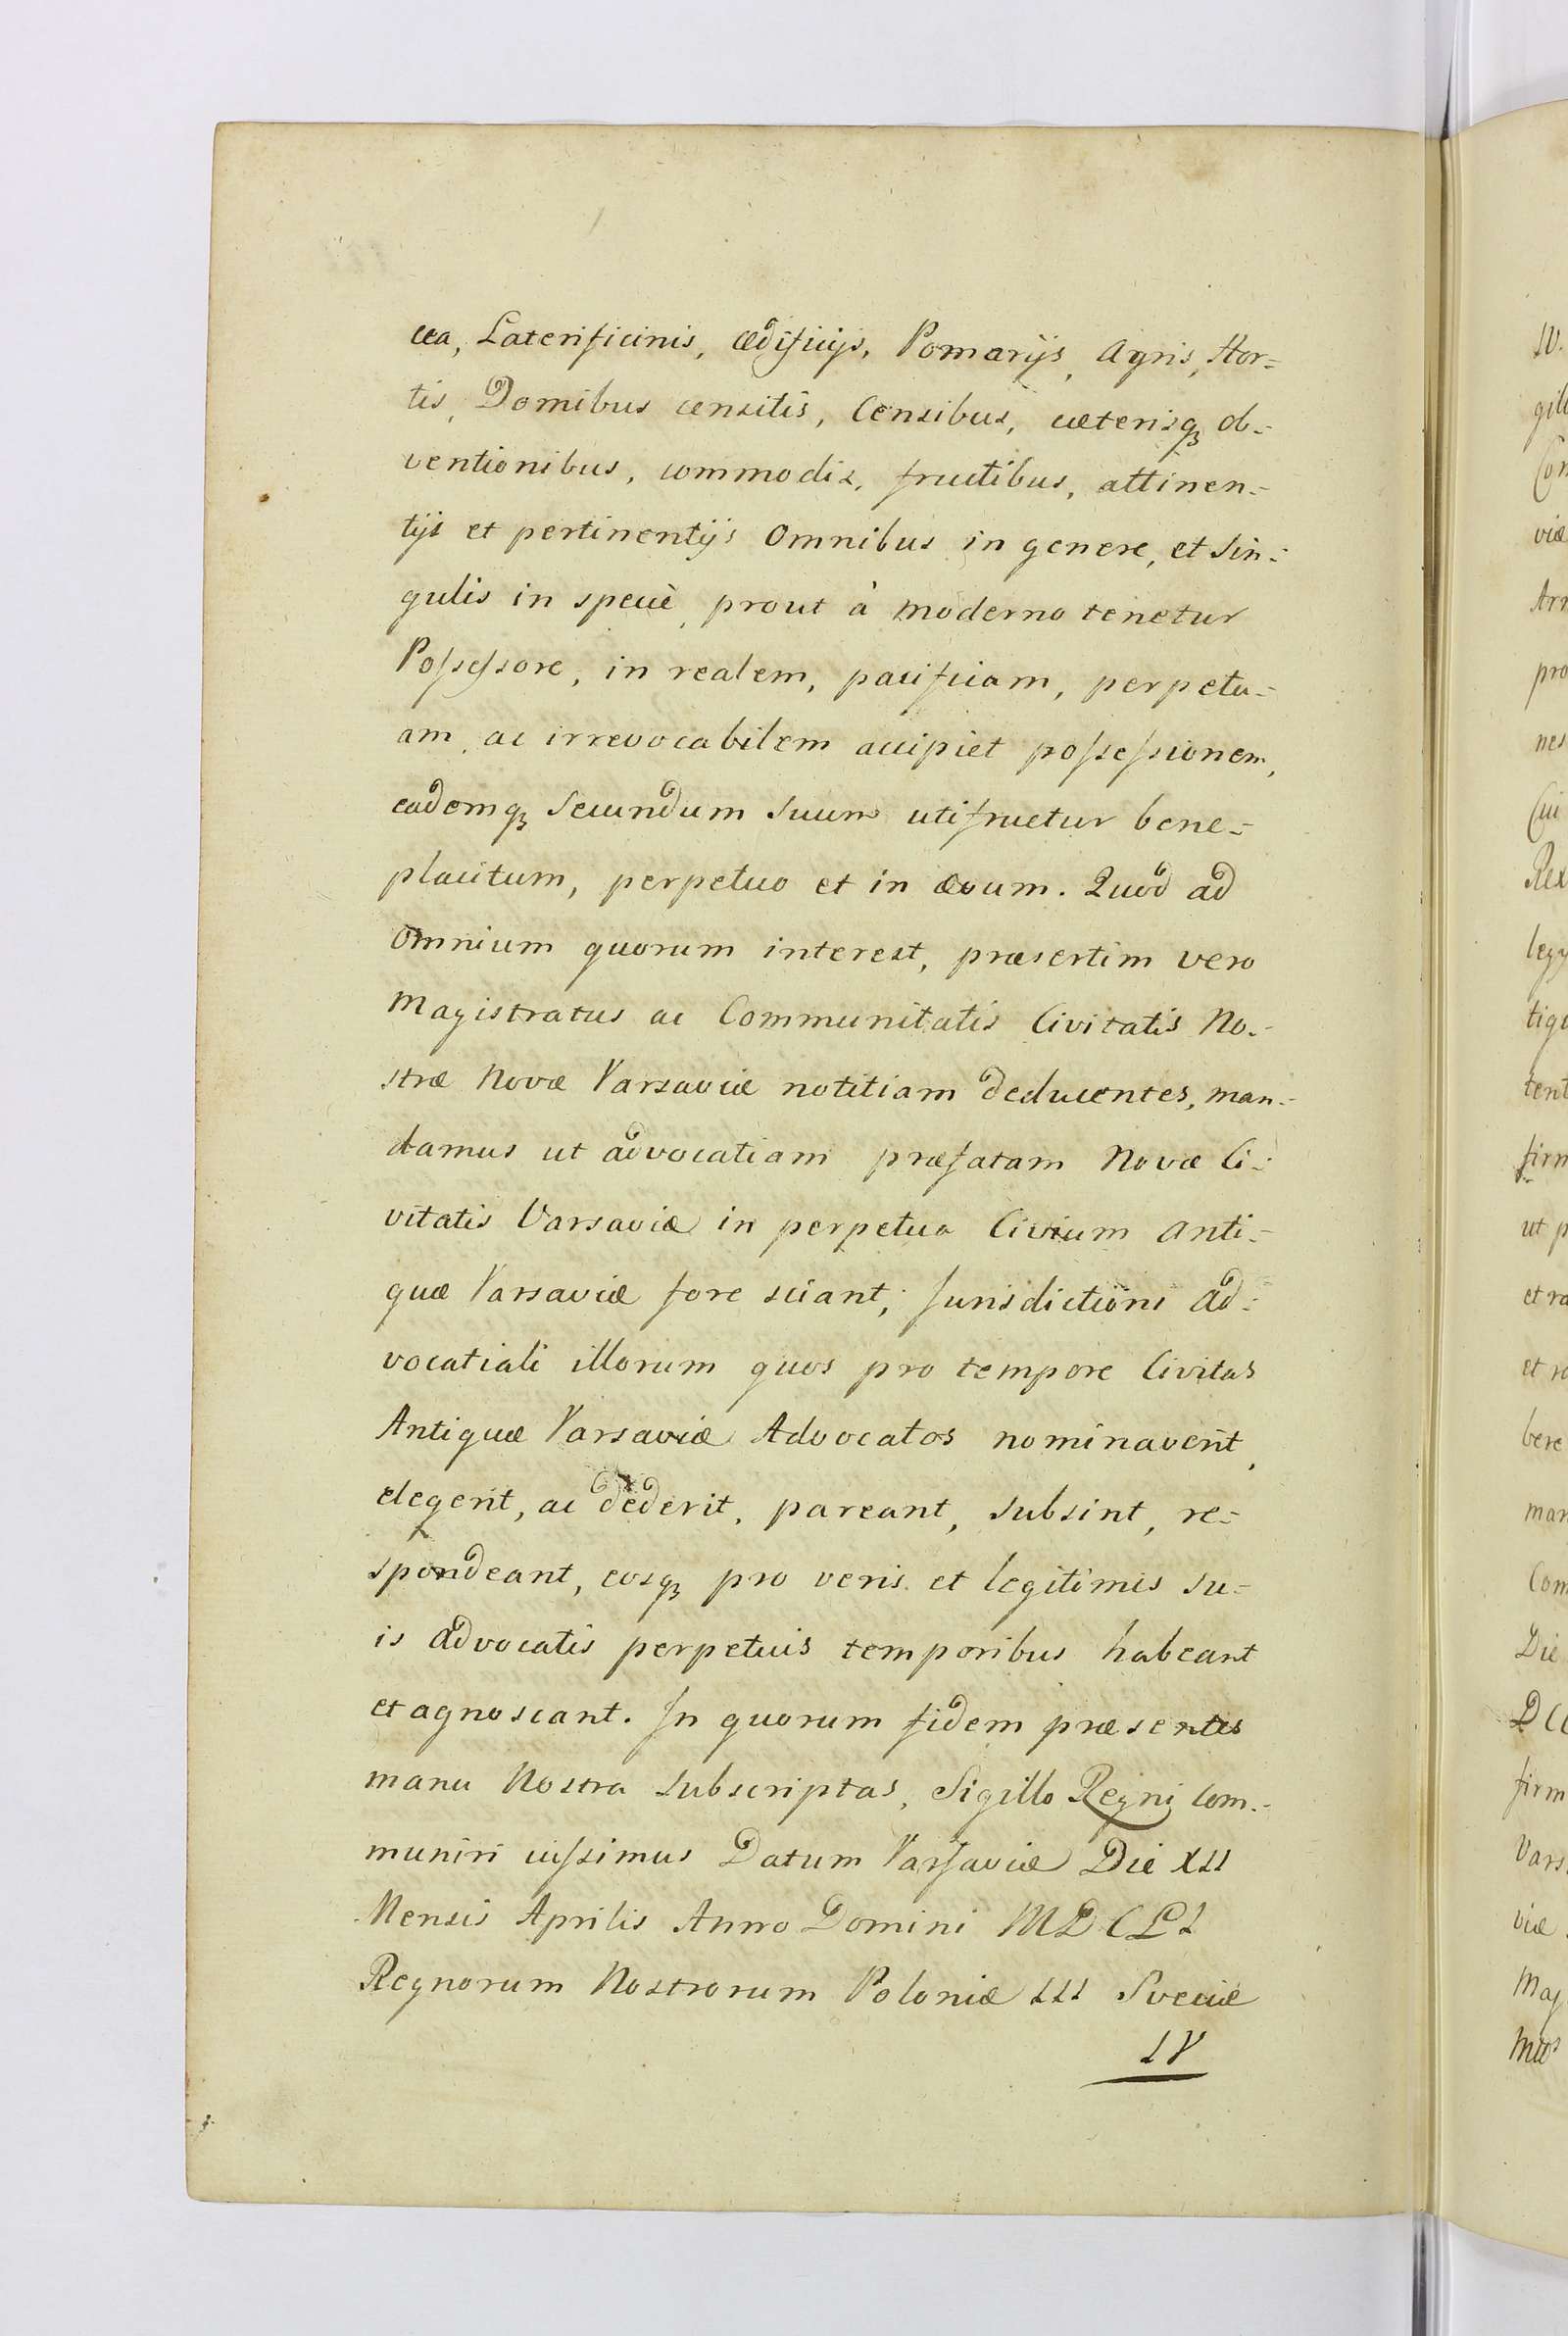 cea, Laterificinis, ædificijs, Pomarijs, Agris, Hor=
tis, Domibus censitis, Censibus, cæterisqꝫ ob=
ventionibus, commodis, fructibus, attinen=
tijs et pertinentijs Omnibus in genere, et Sin=
gulis in speciè, prout à moderno tenetur
Poſseſsore, in realem, pacificam, perpetu=
am, ac irrevocabilem accipiet poſseſsionem,
eademqꝫ Secundum Suum utifruetur bene=
placitum, perpetuo et in ævum. Quod ad
Omnium quorum interest, præsertim vero
Magistratus ac Communitatis Civitatis No=
stræ Novæ Varsaviæ notitiam deducentes, man=
damus ut advocatiam præfatam Novæ Ci=
vitatis Varsaviæ in perpetuo Civium Anti=
quæ Varsaviæ fore sciant; Jurisdictioni Ad=
vocatiali illorum quos pro tempore Civitas
Antiquæ Varsaviæ Advocatos nominaverit,
elegerit, ac dederit, pareant, subsint, re=
spondeant, eosqꝫ pro veris et legitimis su=
is Advocatis perpetuis temporibus habeant
et agnoscant. In quorum fidem præsentes
manu Nostra subscriptas, Sigillo Regni com=
muniri iuſsimus Datum Varſaviæ Die XII
Mensis Aprilis Anno Domini MDCLI
Regnorum Nostrorum Poloniæ III Sveciæ
IV